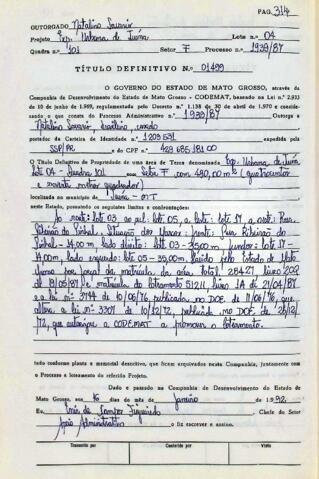 PAG. 314
OUTORGADO Natalino Savario
Projeto Exp. Urbana de Juína Lote n.o 04
Quadra n.o 101 Setor F Processo n.o 1939/87
TÍTULO DEFINITIVO N.o 01499
O GOVERNO DO ESTADO DE MATO GROSSO, através da
Companhia de Desenvolvimento do Estado de Mato Grosso - CODEMAT, baseado na Lei n.o 2.933
de 10 de junho de 1.969, regulamentada pelo Decreto n.o 1.138 de 30 de abril de 1.970 e consistindo-
o que consta do Processo Administrativo n.o 1939/87 Outorga a
Natalino Savario, brasileiro, casado
portador da Carteira de Identidade n.o 1.203.531 expedida pela
SSP/PR e do CPF n.o 429.685.181.00
O Título Definitivo de Propriedade de uma área de Terra denominada Exp. Urbana de Juína
Lote 04 - Quadra 101 Setor F com 490,00 m² (quatrocentos
e noventa metros quadrados)
localizada no município de Juína - MT
neste Estado, possuindo os seguintes limites e confrontações:
Ao norte: lote 03 ao sul: lote 05, a leste: lote 17, a oeste: Rua
Ribeirão do Pinhal. Situação dos Marcos: frente: Rua Ribeirão do
Pinhal - 14,00m lado direito: lote 03 - 35,00m fundos: lote 17 -
14,00m lado esquerdo: lote 05 - 35,00m, havido pelo Estado de Mato
Grosso por força da matrícula da área total 28.427 livro 202
de 19/05/87 e matrícula do loteamento 51211, livro 1A de 21/04/87
e a lei nº 3744 de 10/06/76, publicada no DOE de 11/06/76, que
altera a lei nº 3307 de 10/12/72, publicada no DOE de 26/12/
72, que autoriza a CODEMAT a promover o loteamento.
tudo conforme planta e memorial descritivo, que ficam arquivados nesta Companhia, juntamente com
o Processo e loteamento do referido Projeto.
Dado e passado na Companhia de Desenvolvimento do Estado de
Mato Grosso, aos 16 dias do mês de Janeiro de 1.992.
Eu, Inês de Campos Figueiredo Chefe do Setor
Apoio Administrativo o fiz escrever e assino.
Transcrito por Conferido por Visto